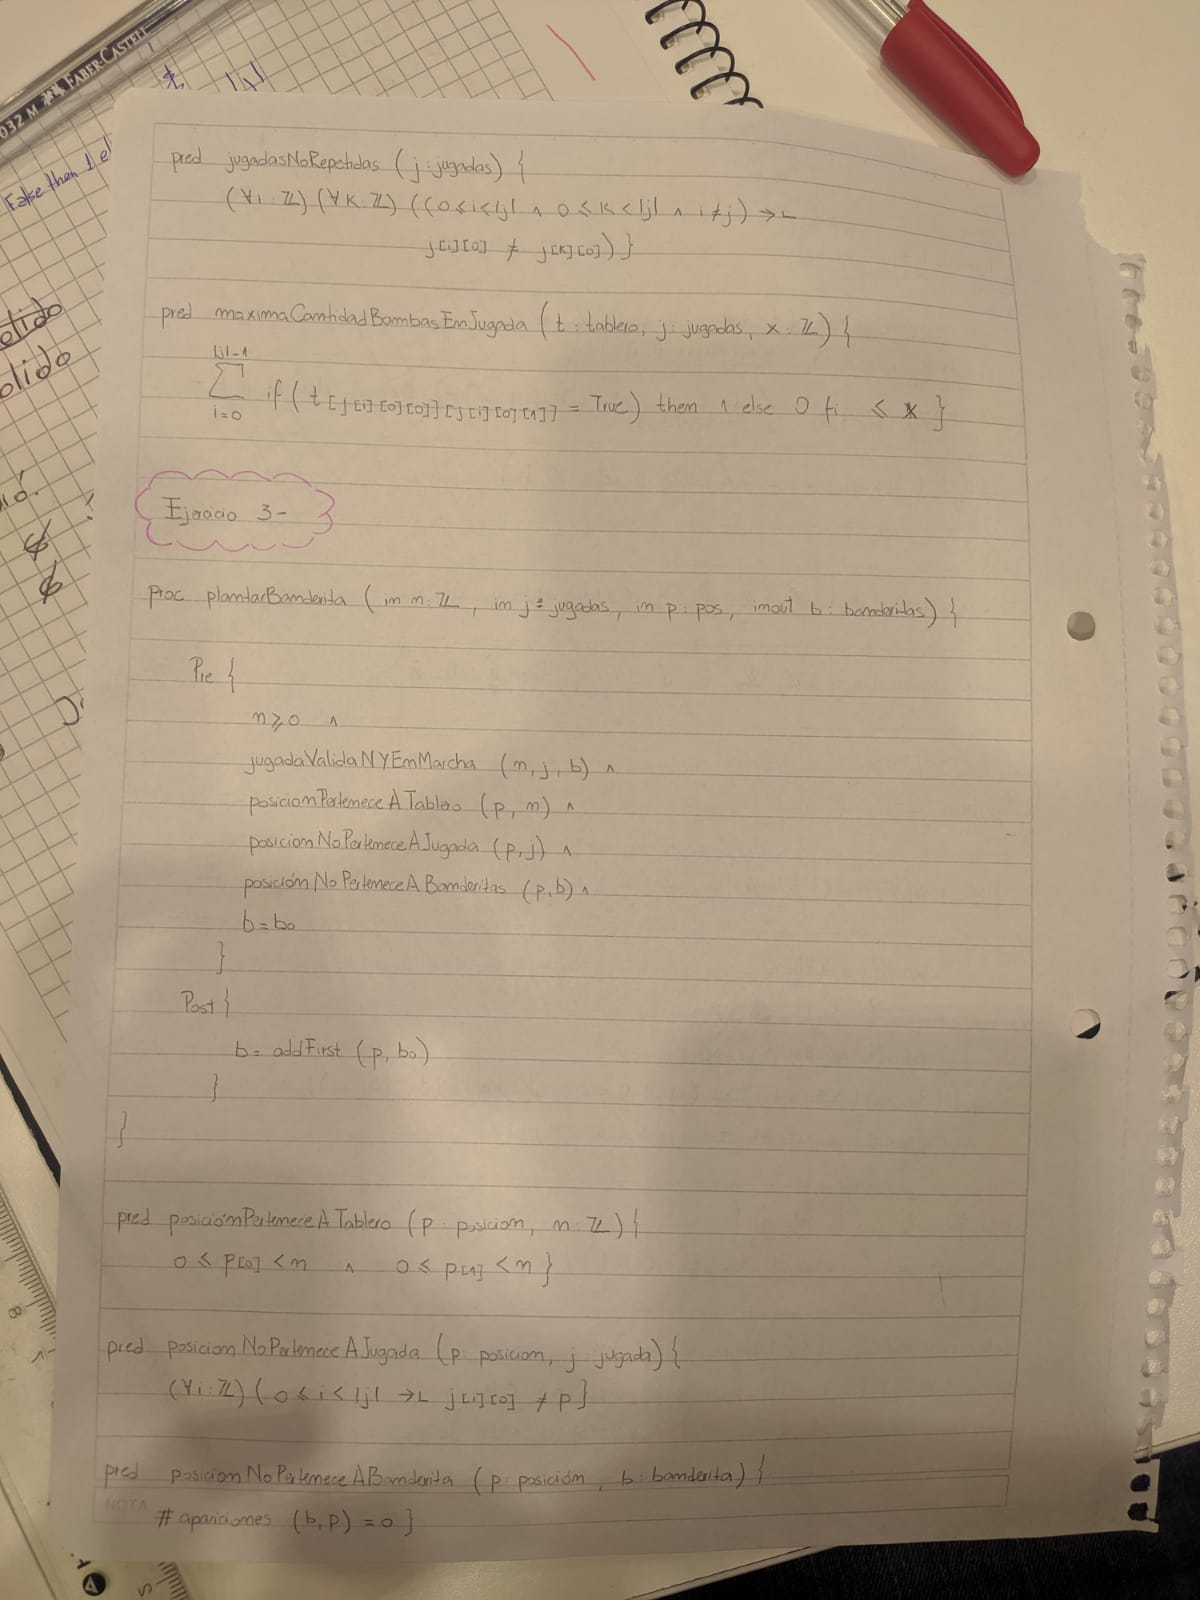 032 M FABER-CASTELL
False then 1 el
pred jugadasNoRepetidas (j: jugadas) {
(∀i: ℤ) (∀k: ℤ) ((0 ≤ i < |j| ∧ 0 ≤ k < |j| ∧ i ≠ j) →L
j[i][0] ≠ j[k][0]) }
pred maximaCantidadBombasEnJugada (t: tablero, j: jugadas, x: ℤ) {
|j|-1
∑ if (t[j[i][0][0]][j[i][0][1]] = True) then 1 else 0 fi ≤ x }
i=0
Ejercicio 3-
proc plantarBanderita (in n: ℤ, in j: jugadas, in p: pos, inout b: banderitas) {
Pre {
n ≥ 0 ∧
jugadaValidaNYEnMarcha (n, j, b) ∧
posicionPerteneceATablero (p, n) ∧
posicionNoPerteneceAJugada (p, j) ∧
posiciónNoPerteneceABanderitas (p, b) ∧
b = b0
}
Post {
b = addFirst (p, b0)
}
}
pred posiciónPerteneceATablero (p: posicion, n: ℤ) {
0 ≤ p[0] < n ∧ 0 ≤ p[1] < n }
pred posicionNoPerteneceAJugada (p: posicion, j: jugada) {
(∀i: ℤ) (0 ≤ i < |j| →L j[i][0] ≠ p }
pred posicionNoPerteneceABanderita (p: posición, b: banderita) {
NOTA
# apariciones (b, p) = 0 }